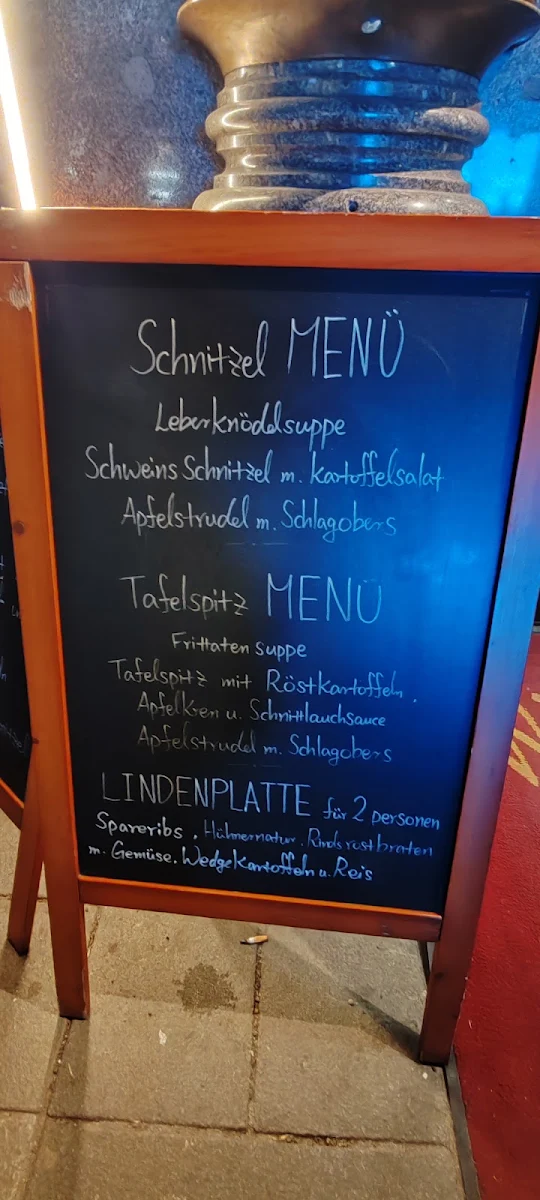 Schnitzel MENÜ
Leberknödelsuppe
Schweins Schnitzel m. Kartoffelsalat
Apfelstrudel m. Schlagobers
Tafelspitz MENÜ
Frittaten suppe
Tafelspitz mit Röstkartoffeln,
Apfelkren u. Schnittlauchsauce
Apfelstrudel m. Schlagobers
LINDENPLATTE für 2 personen
Spareribs, Hühnernatur, Rindsrostbraten
m. Gemüse, Wedgekartoffeln u. Reis